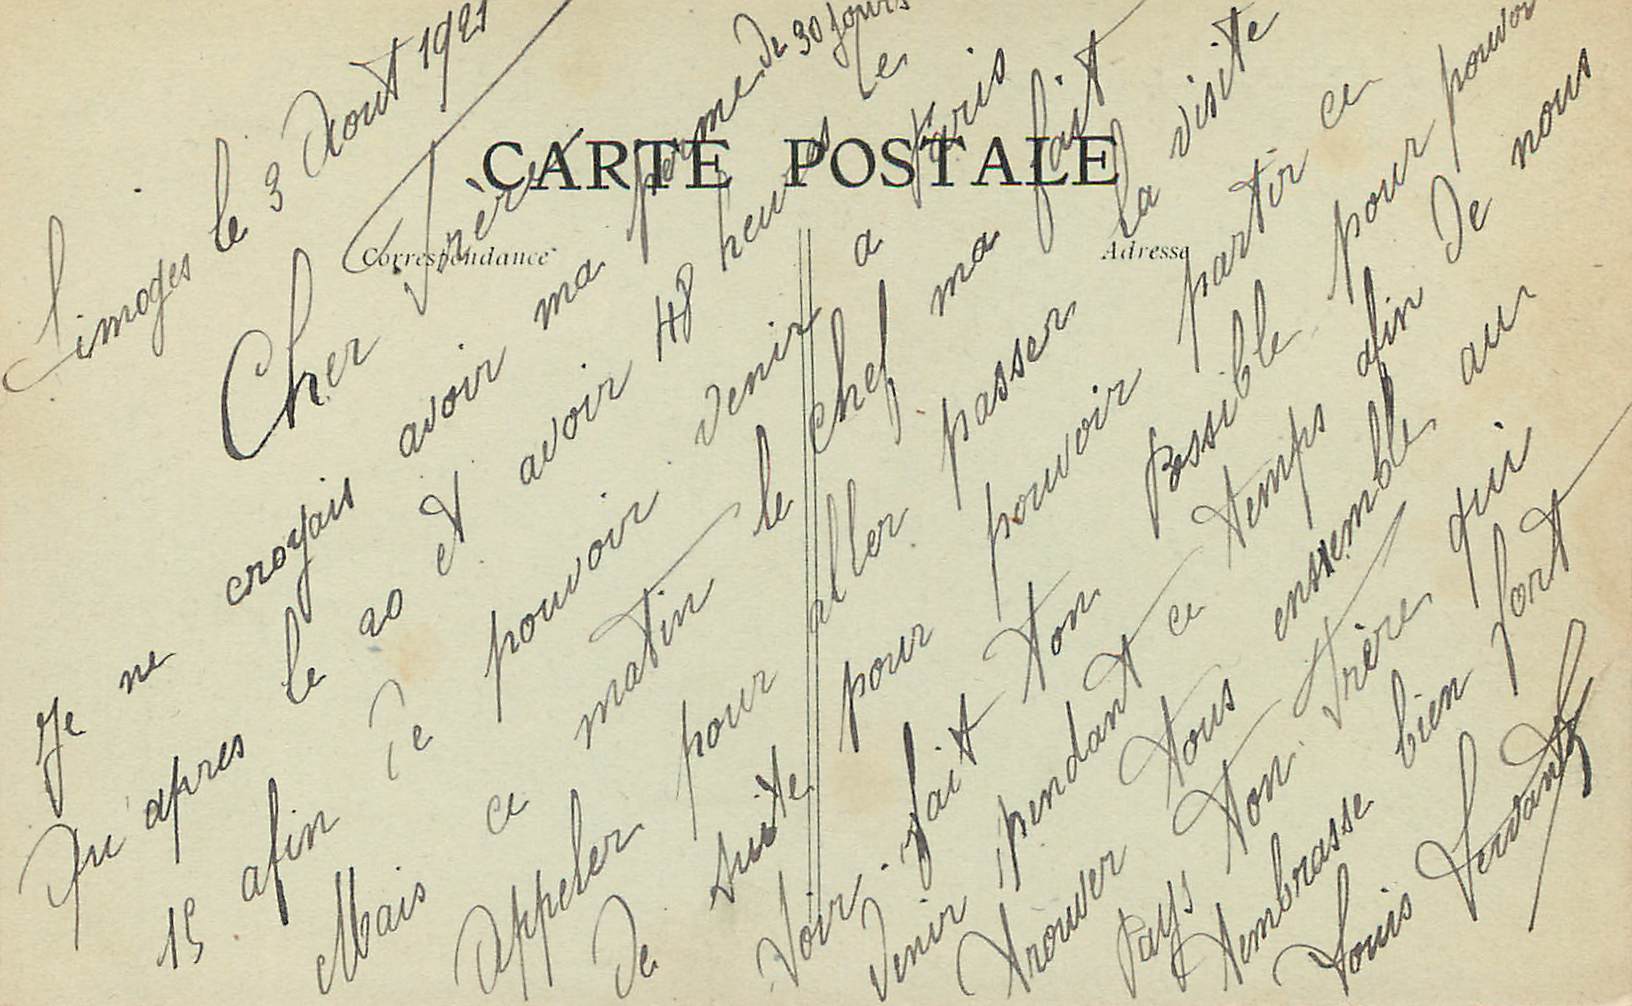 CARTE POSTALE
Correspondance
Adresse
Limoges le 3 Aout 1921
Cher Frère
Je ne croyais avoir ma perme de 30 jours
Qu'apres le 20 et avoir 48 heures le
15 afin de pouvoir venir a Paris
Mais ce matin le chef ma fait
Appeler pour aller passer la visite
De suite pour pouvoir partir ce
Soir. fait ton Possible pour pouvoir
Venir pendant ce temps afin de nous
trouver tous enssemble au
Pays ton frère qui
t'embrasse bien fort
Louis Servant